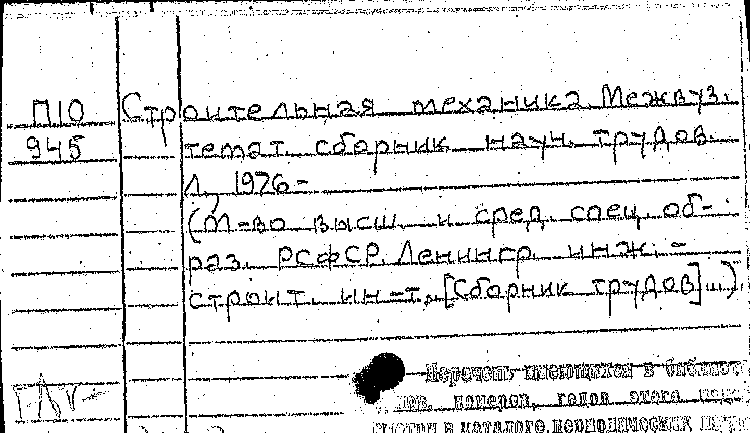 П10 Строительная механика. Межвуз.
945 темат. сборник науч. трудов.
Л., 1976-
(М-во высш. и сред. спец. об-
раз. РСФСР. Ленингр. инж.-
строит. ин-т, [Сборник трудов]...).
Перечень имеющихся в библиот
номеров, годов этого
в каталоге периодических